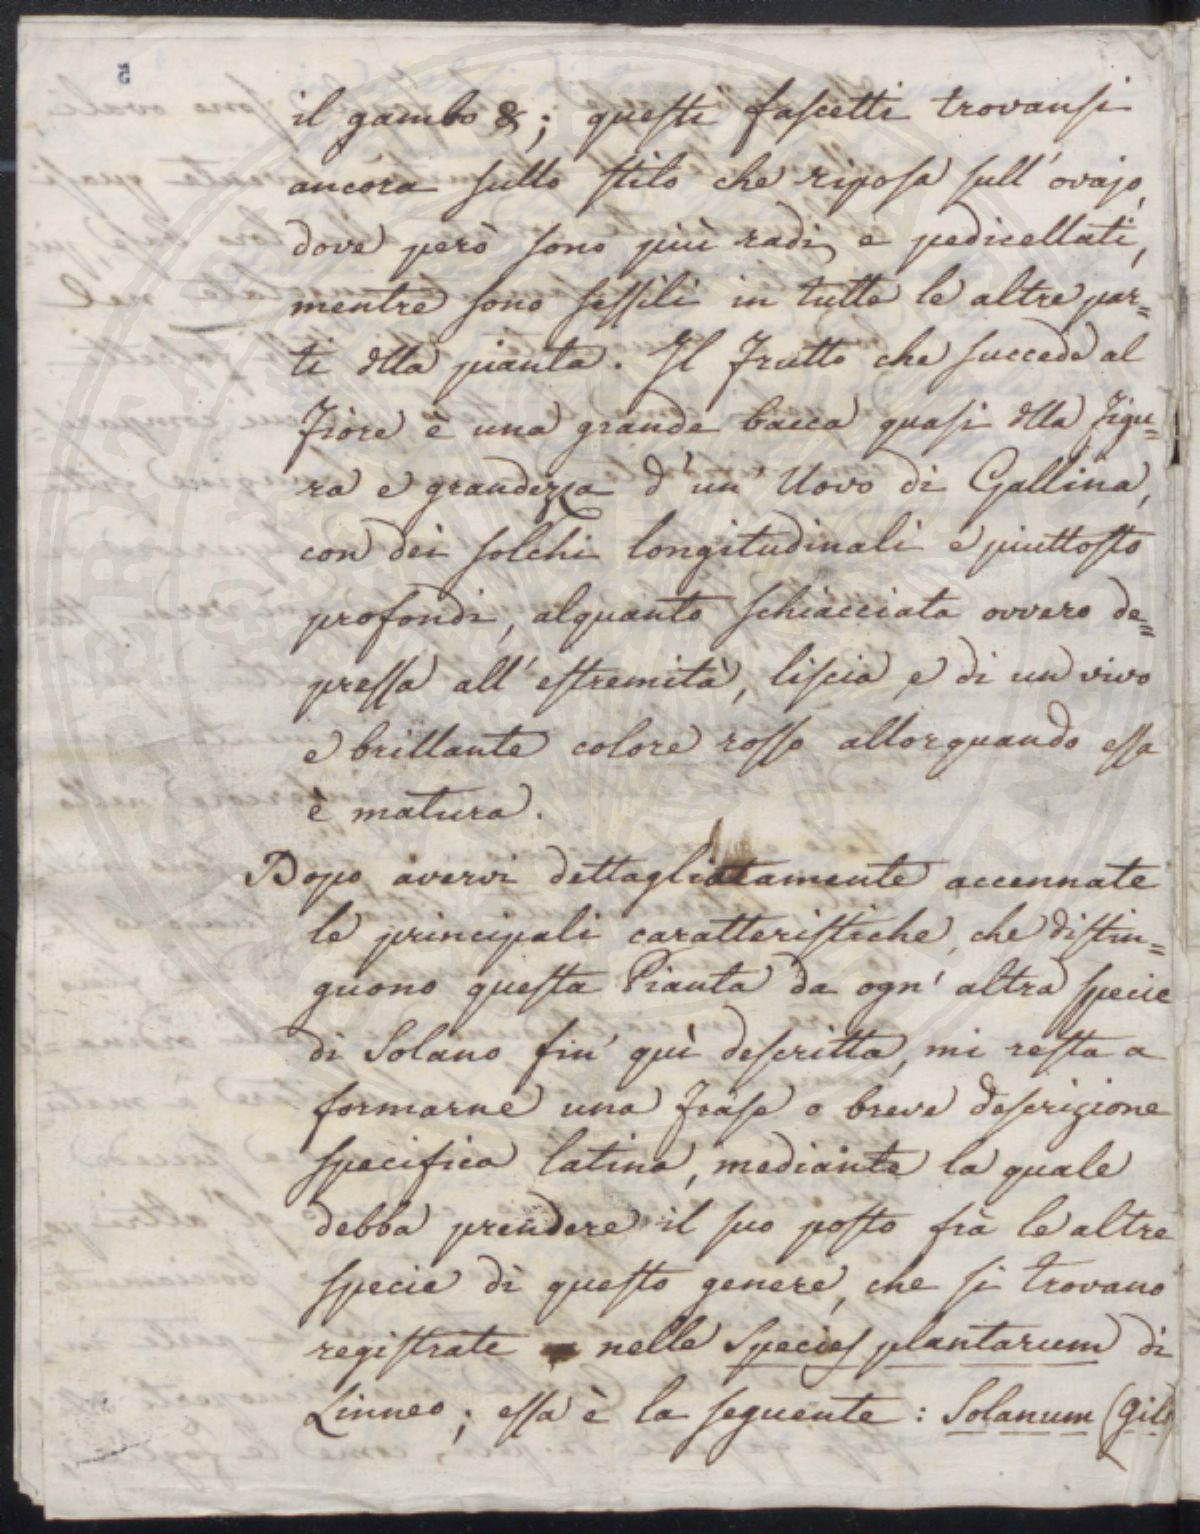 5
il gambo &; questi fascetti trovansi
ancora sullo stilo che riposa sull' ovajo,
dove però sono più radi, e pedicellati,
mentre sono sessili in tutte le altre par=
ti dlla pianta. Il Frutto che succede al
Fiore è una grande bacca quasi dlla Figu=
ra e grandezza d' un' Uovo di Gallina,
con dei solchi longitudinali e piuttosto
profondi, alquanto schiacciata ovvero de=
pressa all' estremità, liscia, e di un vivo
e brillante colore rosso allorquando essa
è matura.
Dopo avervi dettagliatamente accennate
le principali caratteristiche, che distin=
guono questa Pianta da ogn' altra specie
di Solano fin' quì descritta, mi resta a
formarne una Frase o breve descrizione
specifica latina, mediante la quale
debba prendere il suo posto frà le altre
specie di questo genere, che si trovano
registrate nelle Species plantarum di
Linneo; essa è la seguente: Solanum (Gilo)